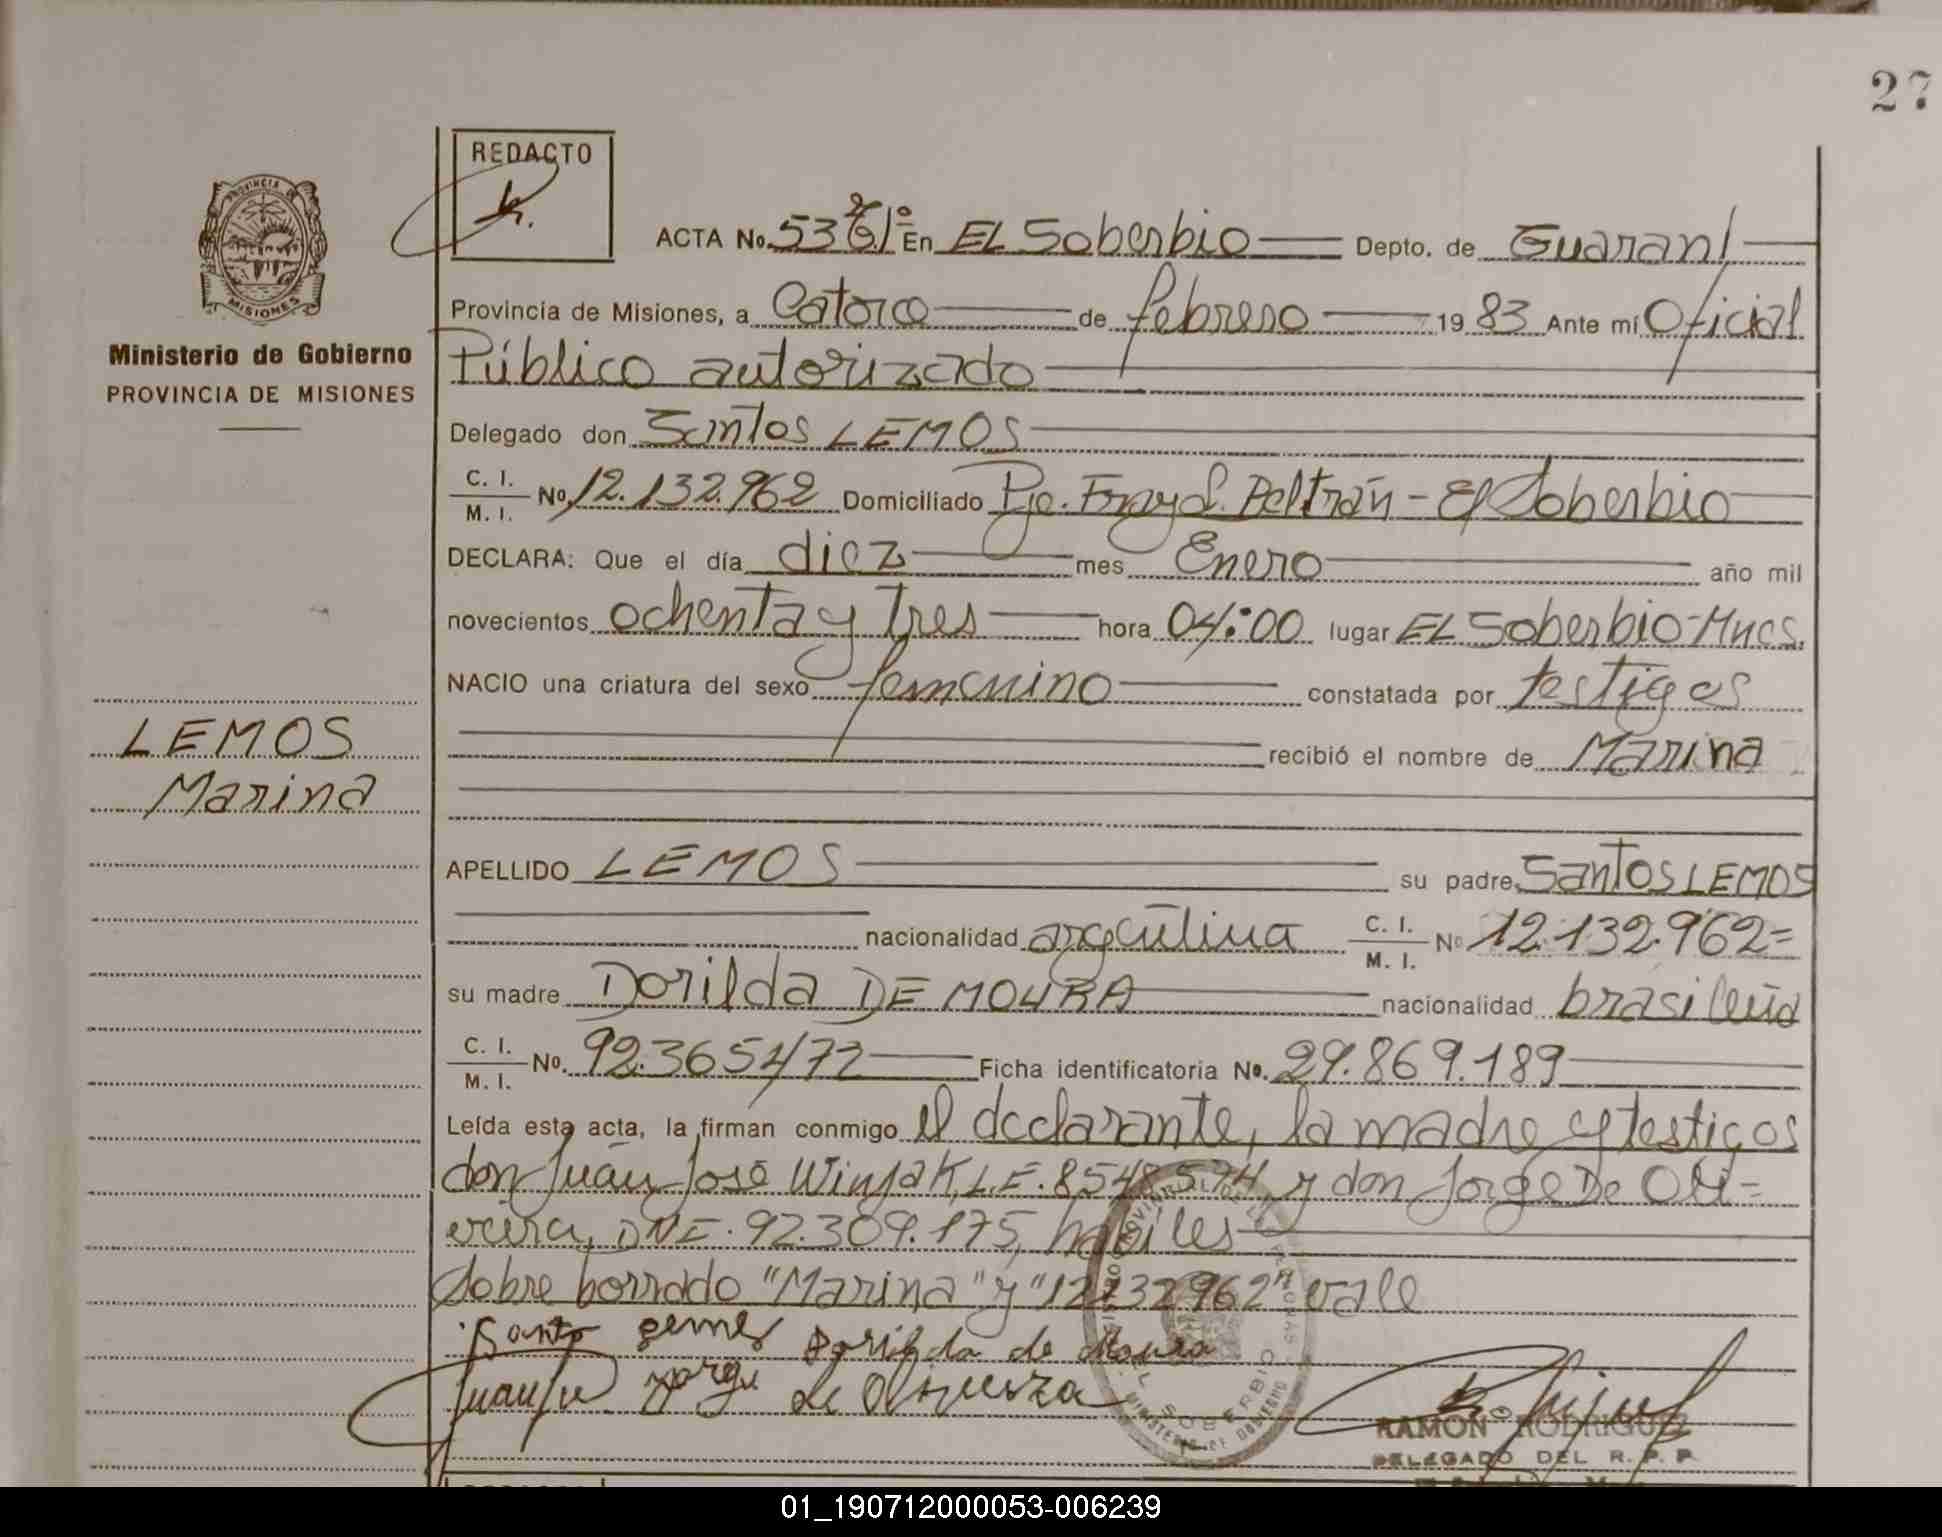 27
REDACTO
PROVINCIA DE
MISIONES
Ministerio de Gobierno
PROVINCIA DE MISIONES
ACTA No. 53 En EL Soberbio Depto. de Guaraní
Provincia de Misiones, a Catorce de febrero 1983 Ante mí Oficial
Público autorizado
Delegado don Santos LEMOS
C. I.
M. I. No. 12.132.962 Domiciliado Pje. Fray L. Beltrán - El Soberbio
DECLARA: Que el día diez mes Enero año mil
novecientos ochenta y tres hora 04:00 lugar EL Soberbio-Mnes.
NACIO una criatura del sexo femenino constatada por testigos
recibió el nombre de Marina
LEMOS
Marina
APELLIDO LEMOS su padre Santos LEMOS
nacionalidad argentina C. I. M. I. No 12.132.962=
su madre Dorilda DE MOURA nacionalidad brasileña
C. I.
M. I. No. 92.365477 Ficha identificatoria No. 29.869.189
Leída esta acta, la firman conmigo el declarante, la madre y testigos
don Juan José Winjak, L.E. 8548574 y don Jorge De Oli=
veira, DNE. 92.309.175, habiles
Sobre borrado "Marina" y "12132962" vale
Dorilda de Moura
EL SOBERBIO
MINISTERIO DE GOBIERNO
RAMON RODRIGUEZ
DELEGADO DEL R. P. P.
01_190712000053-006239